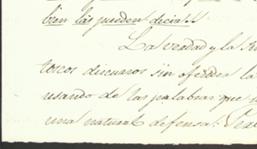 bien las pueden decia
La verdad y la
torcos discursos sin ofender la
usando de las palabras que
una natural defensa.